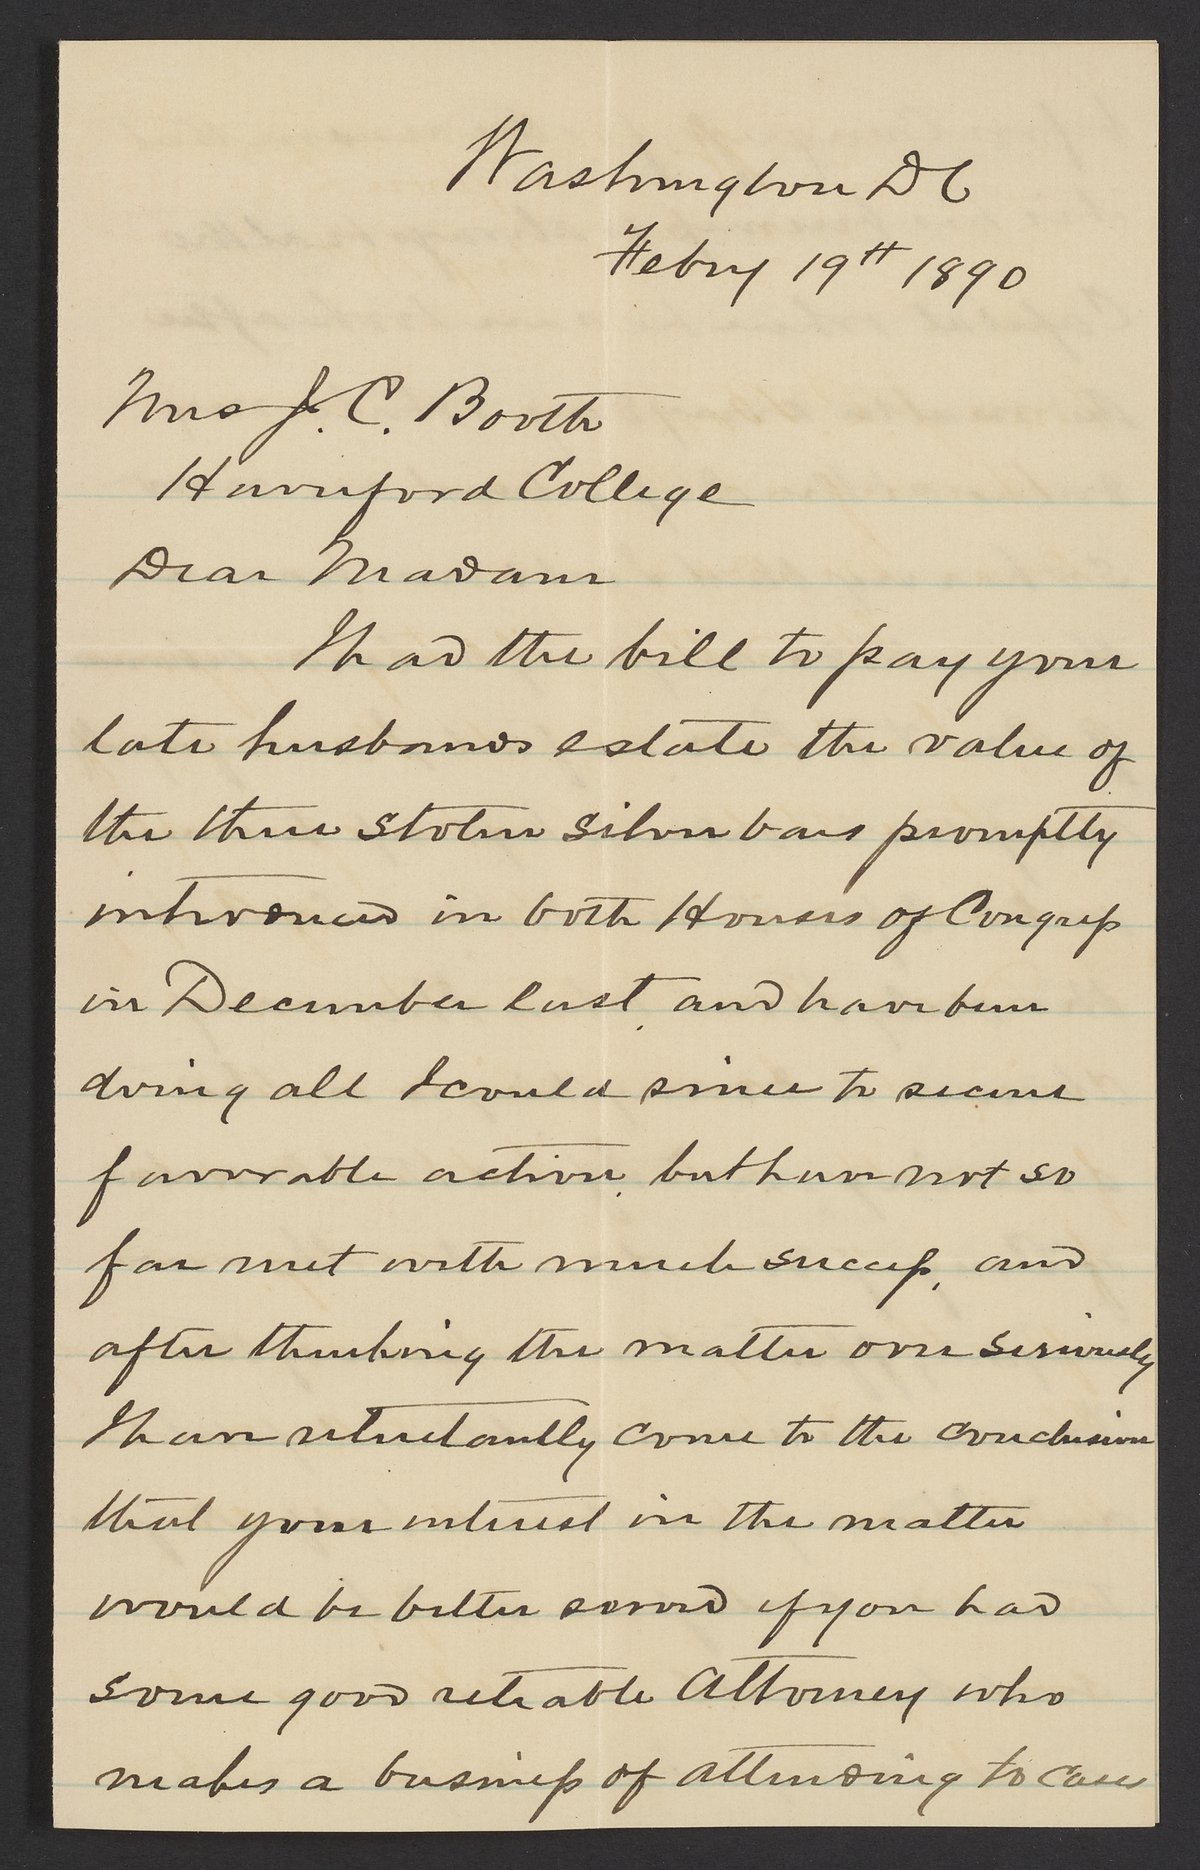 Washington DC
Febry 19th 1890
Mrs J. C. Booth
Haverford College
Dear Madam
I had the bill to pay your
late husbands estate the value of
the three stolen silver bars promptly
introduced in both Houses of Congress
in December last, and have been
doing all I could since to secure
favorable action, but have not so
far met with much success, and
after thinking the matter over seriously
I have reluctantly come to the conclusion
that your interest in the matter
would be better served if you had
some good reliable Attorney who
makes a business of attending to cases